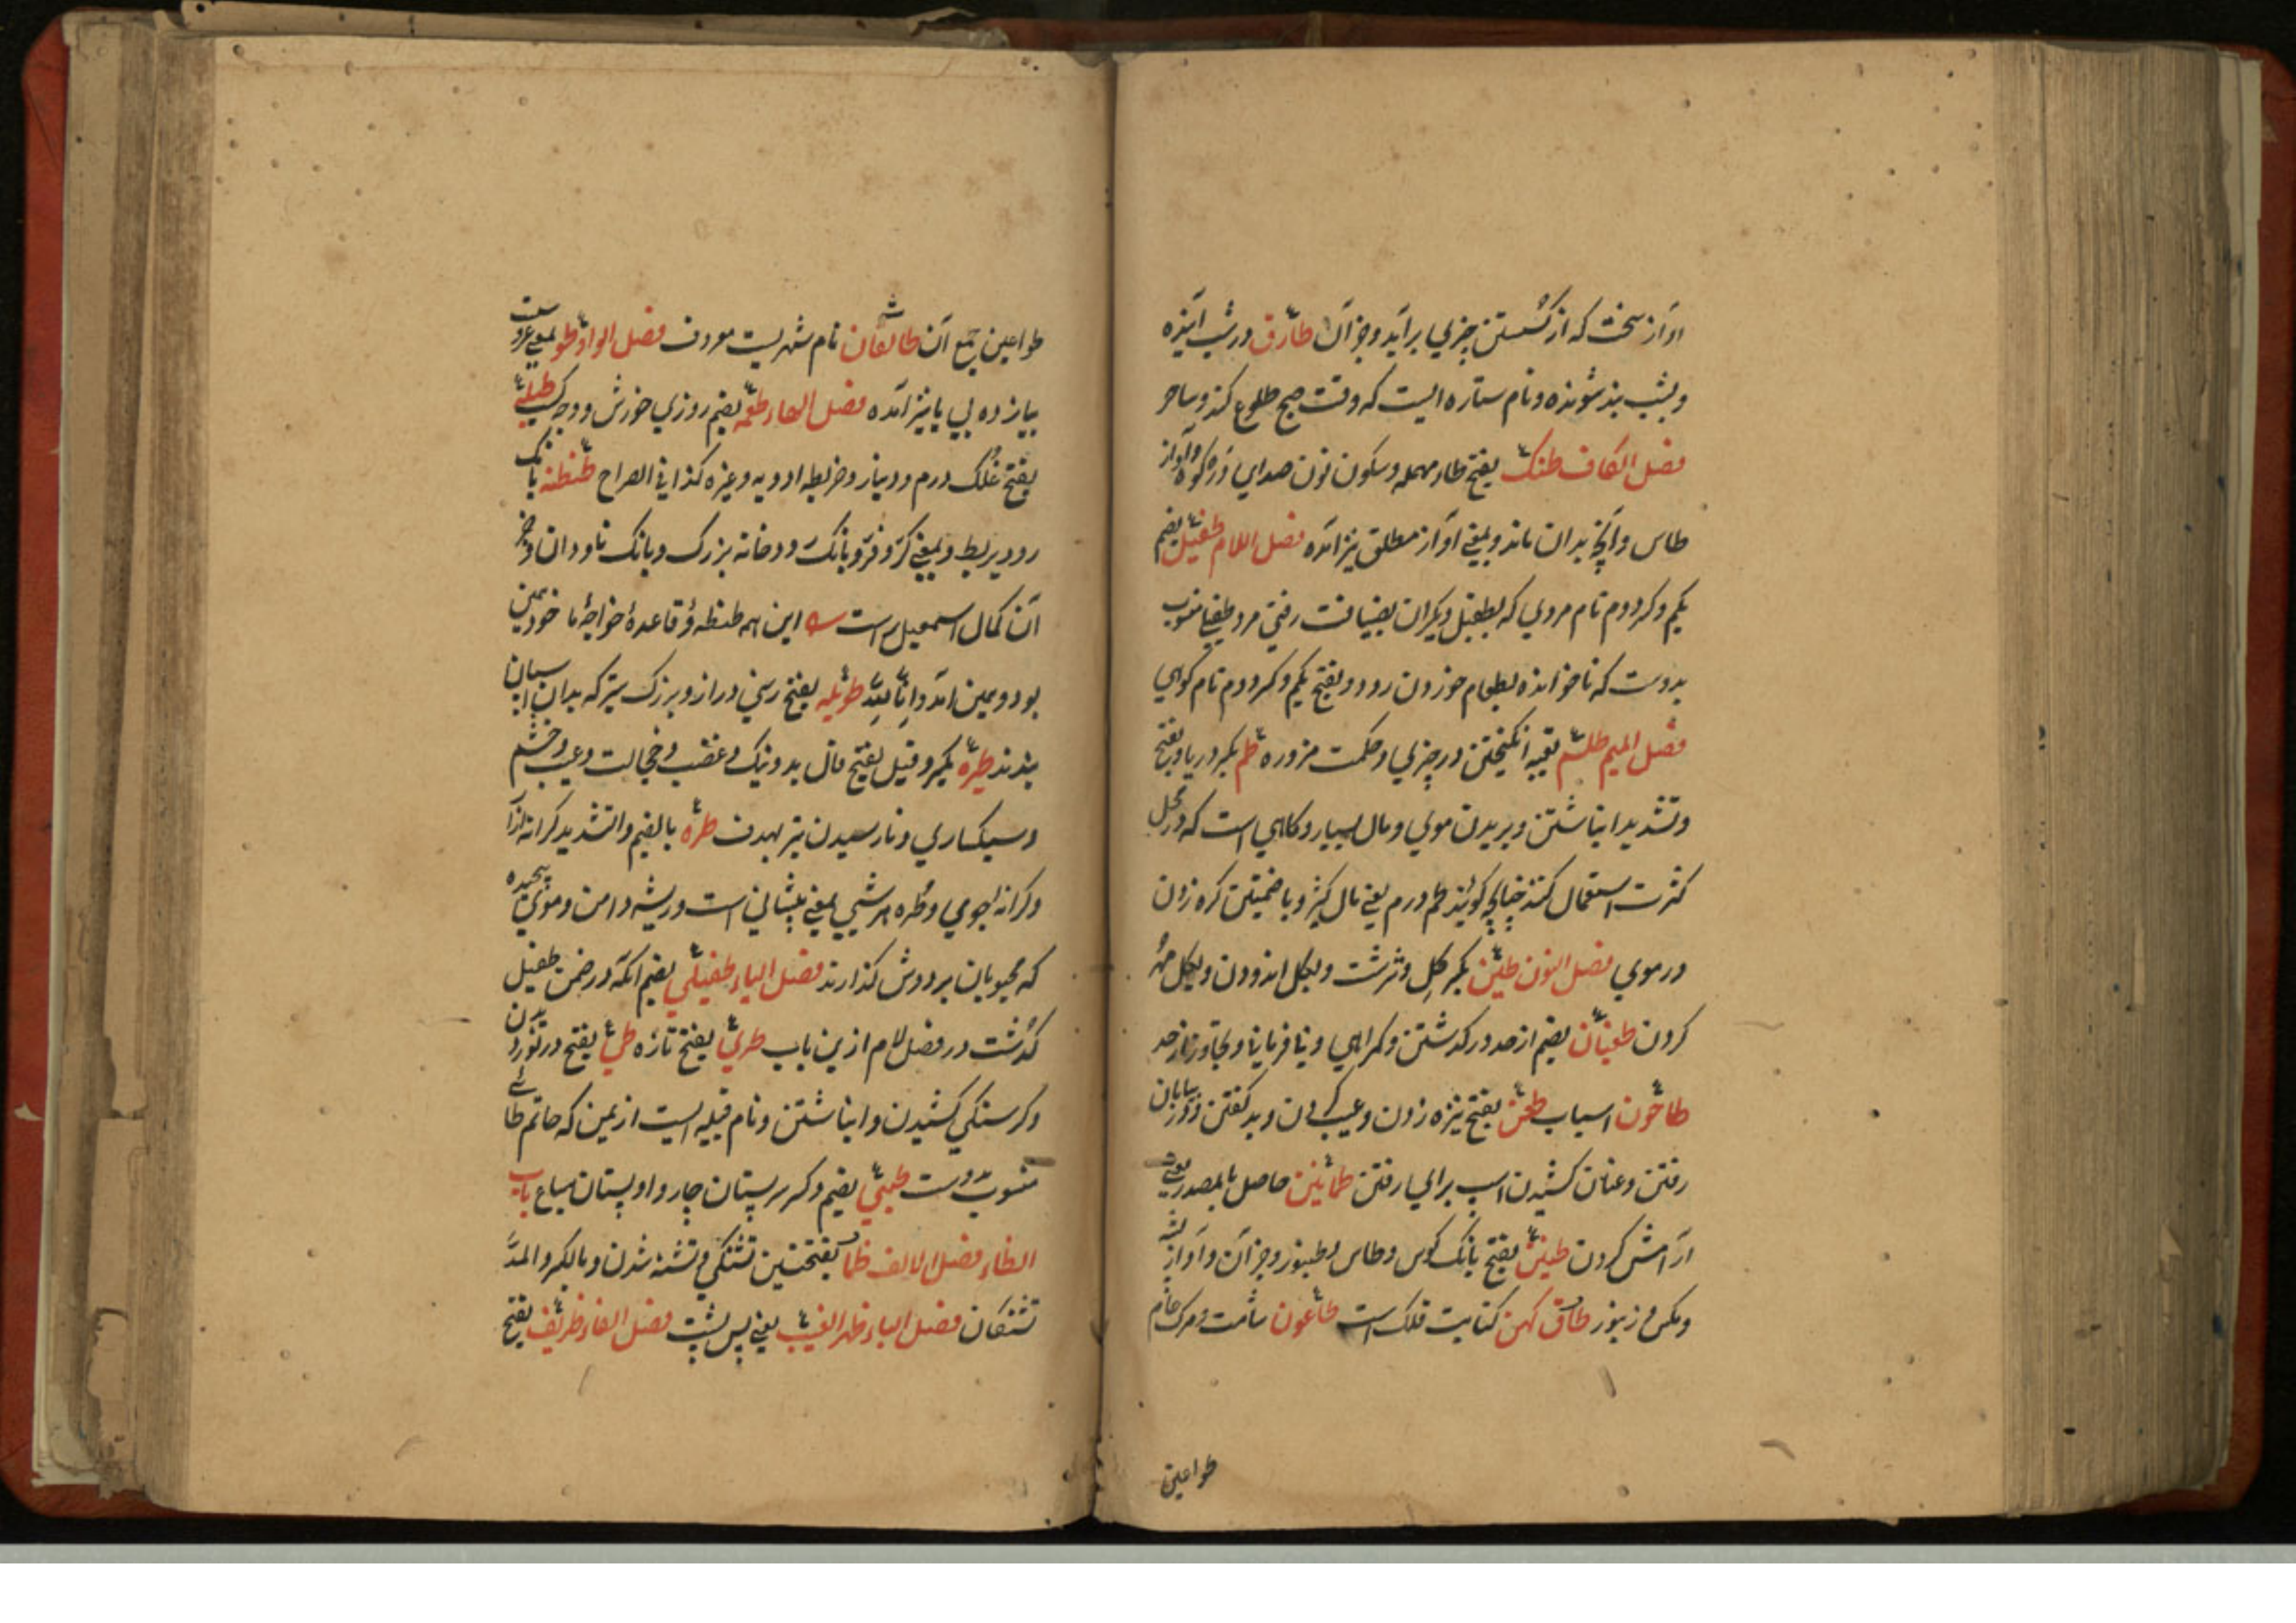 آواز سخت که از شکستن چیزی برآید و جز آن طارق در شب آینده
و بشب پدید شونده و نام ستاره ایست که وقت صبح طلوع کند و ساحر
فصل الکاف طنک بفتح طاء مهمله و سکون نون صدای دره کوه و آواز
طاس و آنچه بدان ماند و بمعنی آواز مطلق نیز آمده فصل اللام طفیل بضم
یکم و کسر دوم نام مردی که بطفیل دیگران بضیافت رفتی مرد طفیلی منسوب
بدوست که ناخوانده بطعام خوردن رود و بفتح یکم و کسر دوم نام کوهی
فصل المیم طلسم تعبیه انکیختن در چیزی و حکمت مزوره طم بکسر دریا و بفتح
و تشدید انباشتن و بریدن موی و مال بسیار و کاهی است که در محل
کثرت استعمال کنند چنانچه کویند طم و رم یعنی مال کثیر و با ضمتین کره زدن
در موی فصل النون طین بکسر کل و سرشت و بکل اندودن و بکل مهر
کردن طغیان بضم از حد در کذشتن و کمراهی و نافرمانی و تجاوز از حد
طاحون آسیاب طعن بفتح نیزه زدن و عیب کردن و بد کفتن و در بیابان
رفتن و عنان کشیدن اسب برای رفتن طمانین حاصل بالمصدر یعنی
آرامش کردن طنین بفتح بانک کوس و طاس و طنبور و جز آن و آواز پشه
و مکس و زنبور طاق کهن کنایت فلک است طاعون شامت و مرک عام
طواعین
طواعین جمع آن طالقان نام شهریست معروف فصل الواو طو بمعنی عروست
بیانزده بی یا نیز آمده فصل الهاء طعمه بضم روزی خورش و وجه کسب طبله
بفتح غلک درم و دینار و خریطه ادویه و غیره کذا فی الصراح طنطنه بانک
رود بربط و بمعنی کر و فر و بانک رودخانه بزرک و بانک ناودان و جز
آن کمال اسمعیل راست این همه طنطنه و قاعده خواجه ما خود همین
بود و همین آمد و انا لله طویله بفتح رسنی دراز و بزرک ستبر که بدان اسپان
بندند طیره بکسر و قیل بفتح فال بد و نیک و غضب و خجالت و عیب و خشم
و سبکساری و نارسیدن تیر بهدف طره بالضم و التشدید کرانه ازار
و کرانه جوی و طره هر شیی بمعنی پیشانی است و ریشه دامن و موی پیچیده
که محبوبان بر دوش کذارند فصل الیاء طفیلی بضم آنکه در ضمن طفیل
کذشت در فصل لام ازین باب طری بفتح تازه طی بفتح در نوردیدن
و کرسنکی کشیدن و انباشتن و نام قبیله ایست از یمن که حاتم طائی
منسوب بدوست طبی بضم و کسر سر پستان چاروا و پستان سباع باب
الظاء فصل الالف ظما بفتحتین تشنکی و تشنه شدن و بالکسر و المد
تشنکان فصل الباء ظهر الغیب یعنی پس پشت فصل الفاء ظریف بفتح